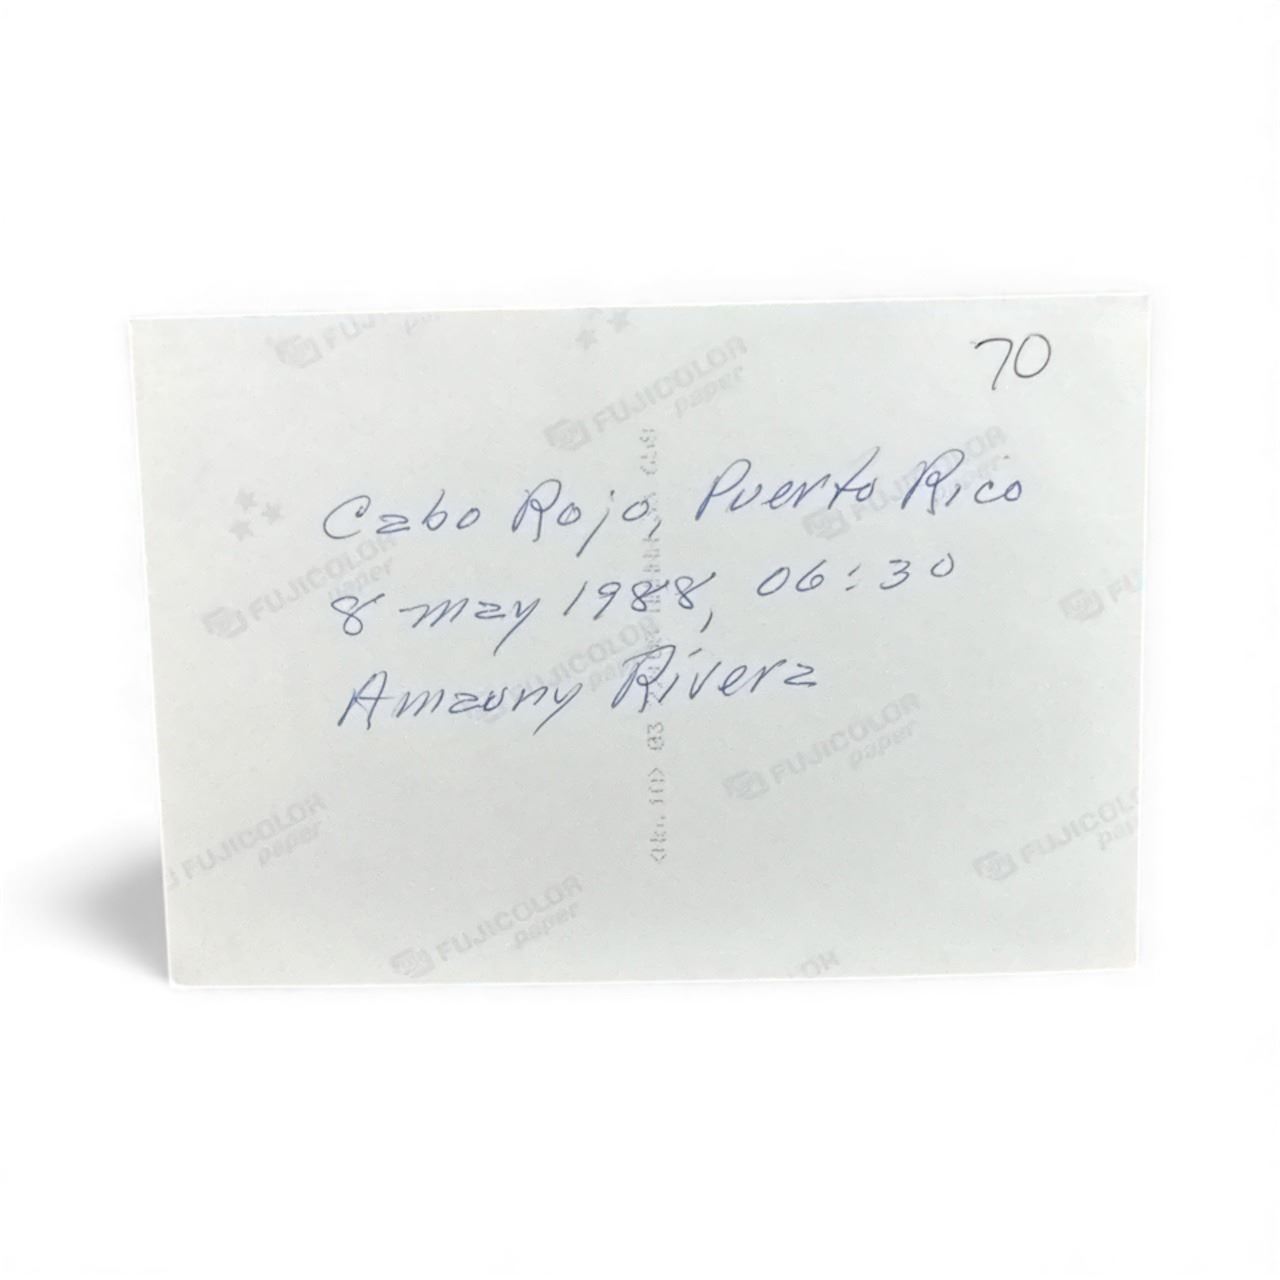 70
Cabo Rojo, Puerto Rico
8 may 1988, 06:30
Amauny Rivera
FUJICOLOR
paper
FUJICOLOR
paper
FUJICOLOR
paper
FUJICOLOR
paper
FUJICOLOR
paper
FUJICOLOR
paper
FUJICOLOR
paper